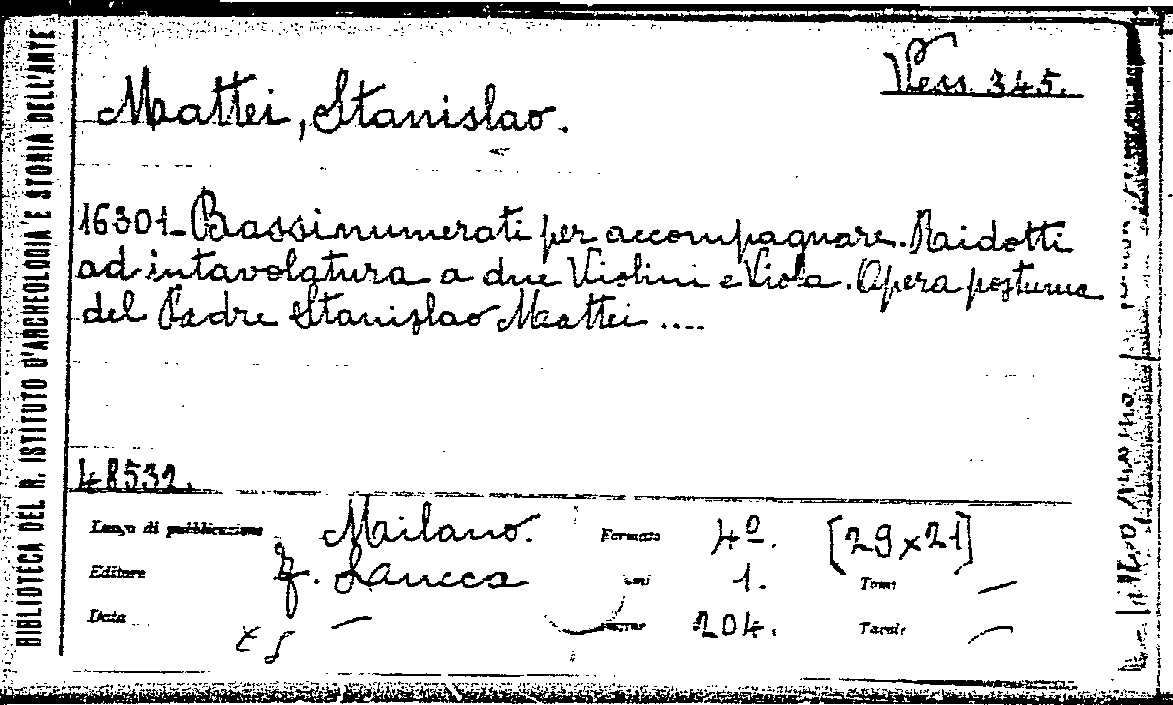 BIBLIOTECA DEL R. ISTITUTO D'ARCHEOLOGIA E STORIA DELL'ARTE
Vess. 345.
Mattei, Stanislao.
16301- Bassi numerati per accompagnare. Ridotti
ad intavolatura a due Violini e Viola. Opera postuma
del Padre Stanislao Mattei ....
48532.
Luogo di pubblicazione Milano. Formato 4º. [29x21]
Editore F. Lucca 1. Tomi —
Data — 204. Tavole —